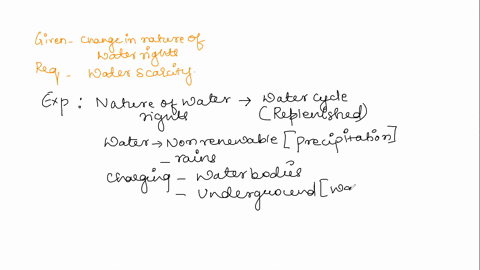 Given - change in nature of
water rights
Req - Water scarcity.
Exp : Nature of water → Water cycle
rights (Replenished)
Water → Non renewable [precipitation]
- rains
Charging - Water bodies
- Underground [Wa